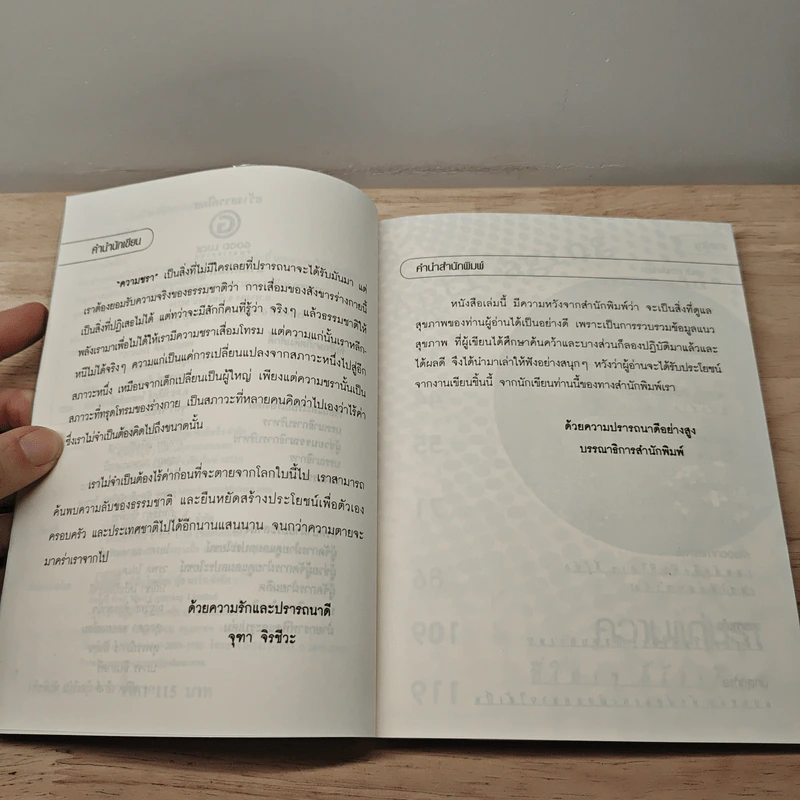 คำนำนักเขียน
"ความชรา" เป็นสิ่งที่ไม่มีใครเลยที่ปรารถนาจะได้รับมันมา แต่
เราต้องยอมรับความจริงของธรรมชาติว่า การเสื่อมของสังขารร่างกายนี้
เป็นสิ่งที่ปฏิเสธไม่ได้ แต่ทว่าจะมีสักกี่คนที่รู้ว่า จริงๆ แล้วธรรมชาติให้
พลังเรามาเพื่อไม่ได้ให้เรามีความชราเสื่อมโทรม แต่ความแก่นั้นเราหลีก-
หนีไม่ได้จริงๆ ความแก่เป็นแค่การเปลี่ยนแปลงจากสภาวะหนึ่งไปสู่อีก
สภาวะหนึ่ง เหมือนจากเด็กเปลี่ยนเป็นผู้ใหญ่ เพียงแต่ความชรานั้นเป็น
สภาวะที่ทรุดโทรมของร่างกาย เป็นสภาวะที่หลายคนคิดว่าไปเองว่าไร้ค่า
ซึ่งเราไม่จำเป็นต้องคิดไปถึงขนาดนั้น
เราไม่จำเป็นต้องไร้ค่าก่อนที่จะตายจากโลกใบนี้ไป เราสามารถ
ค้นพบความลับของธรรมชาติ และยืนหยัดสร้างประโยชน์เพื่อตัวเอง
ครอบครัว และประเทศชาติไปได้อีกนานแสนนาน จนกว่าความตายจะ
มาคร่าเราจากไป
ด้วยความรักและปรารถนาดี
จุฑา จิรชีวะ
คำนำสำนักพิมพ์
หนังสือเล่มนี้ มีความหวังจากสำนักพิมพ์ว่า จะเป็นสิ่งที่ดูแล
สุขภาพของท่านผู้อ่านได้เป็นอย่างดี เพราะเป็นการรวบรวมข้อมูลแนว
สุขภาพ ที่ผู้เขียนได้ศึกษาค้นคว้าและบางส่วนก็ลองปฏิบัติมาแล้วและ
ได้ผลดี จึงได้นำมาเล่าให้ฟังอย่างสนุกๆ หวังว่าผู้อ่านจะได้รับประโยชน์
จากงานเขียนชิ้นนี้ จากนักเขียนท่านนี้ของทางสำนักพิมพ์เรา
ด้วยความปรารถนาดีอย่างสูง
บรรณาธิการสำนักพิมพ์